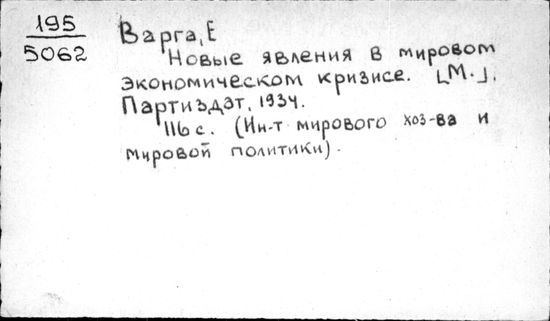 195
5062
Варга, Е
Новые явления в мировом
экономическом кризисе. [М.],
Партиздат, 1934.
116 с. (Ин-т мирового хоз-ва и
мировой политики).